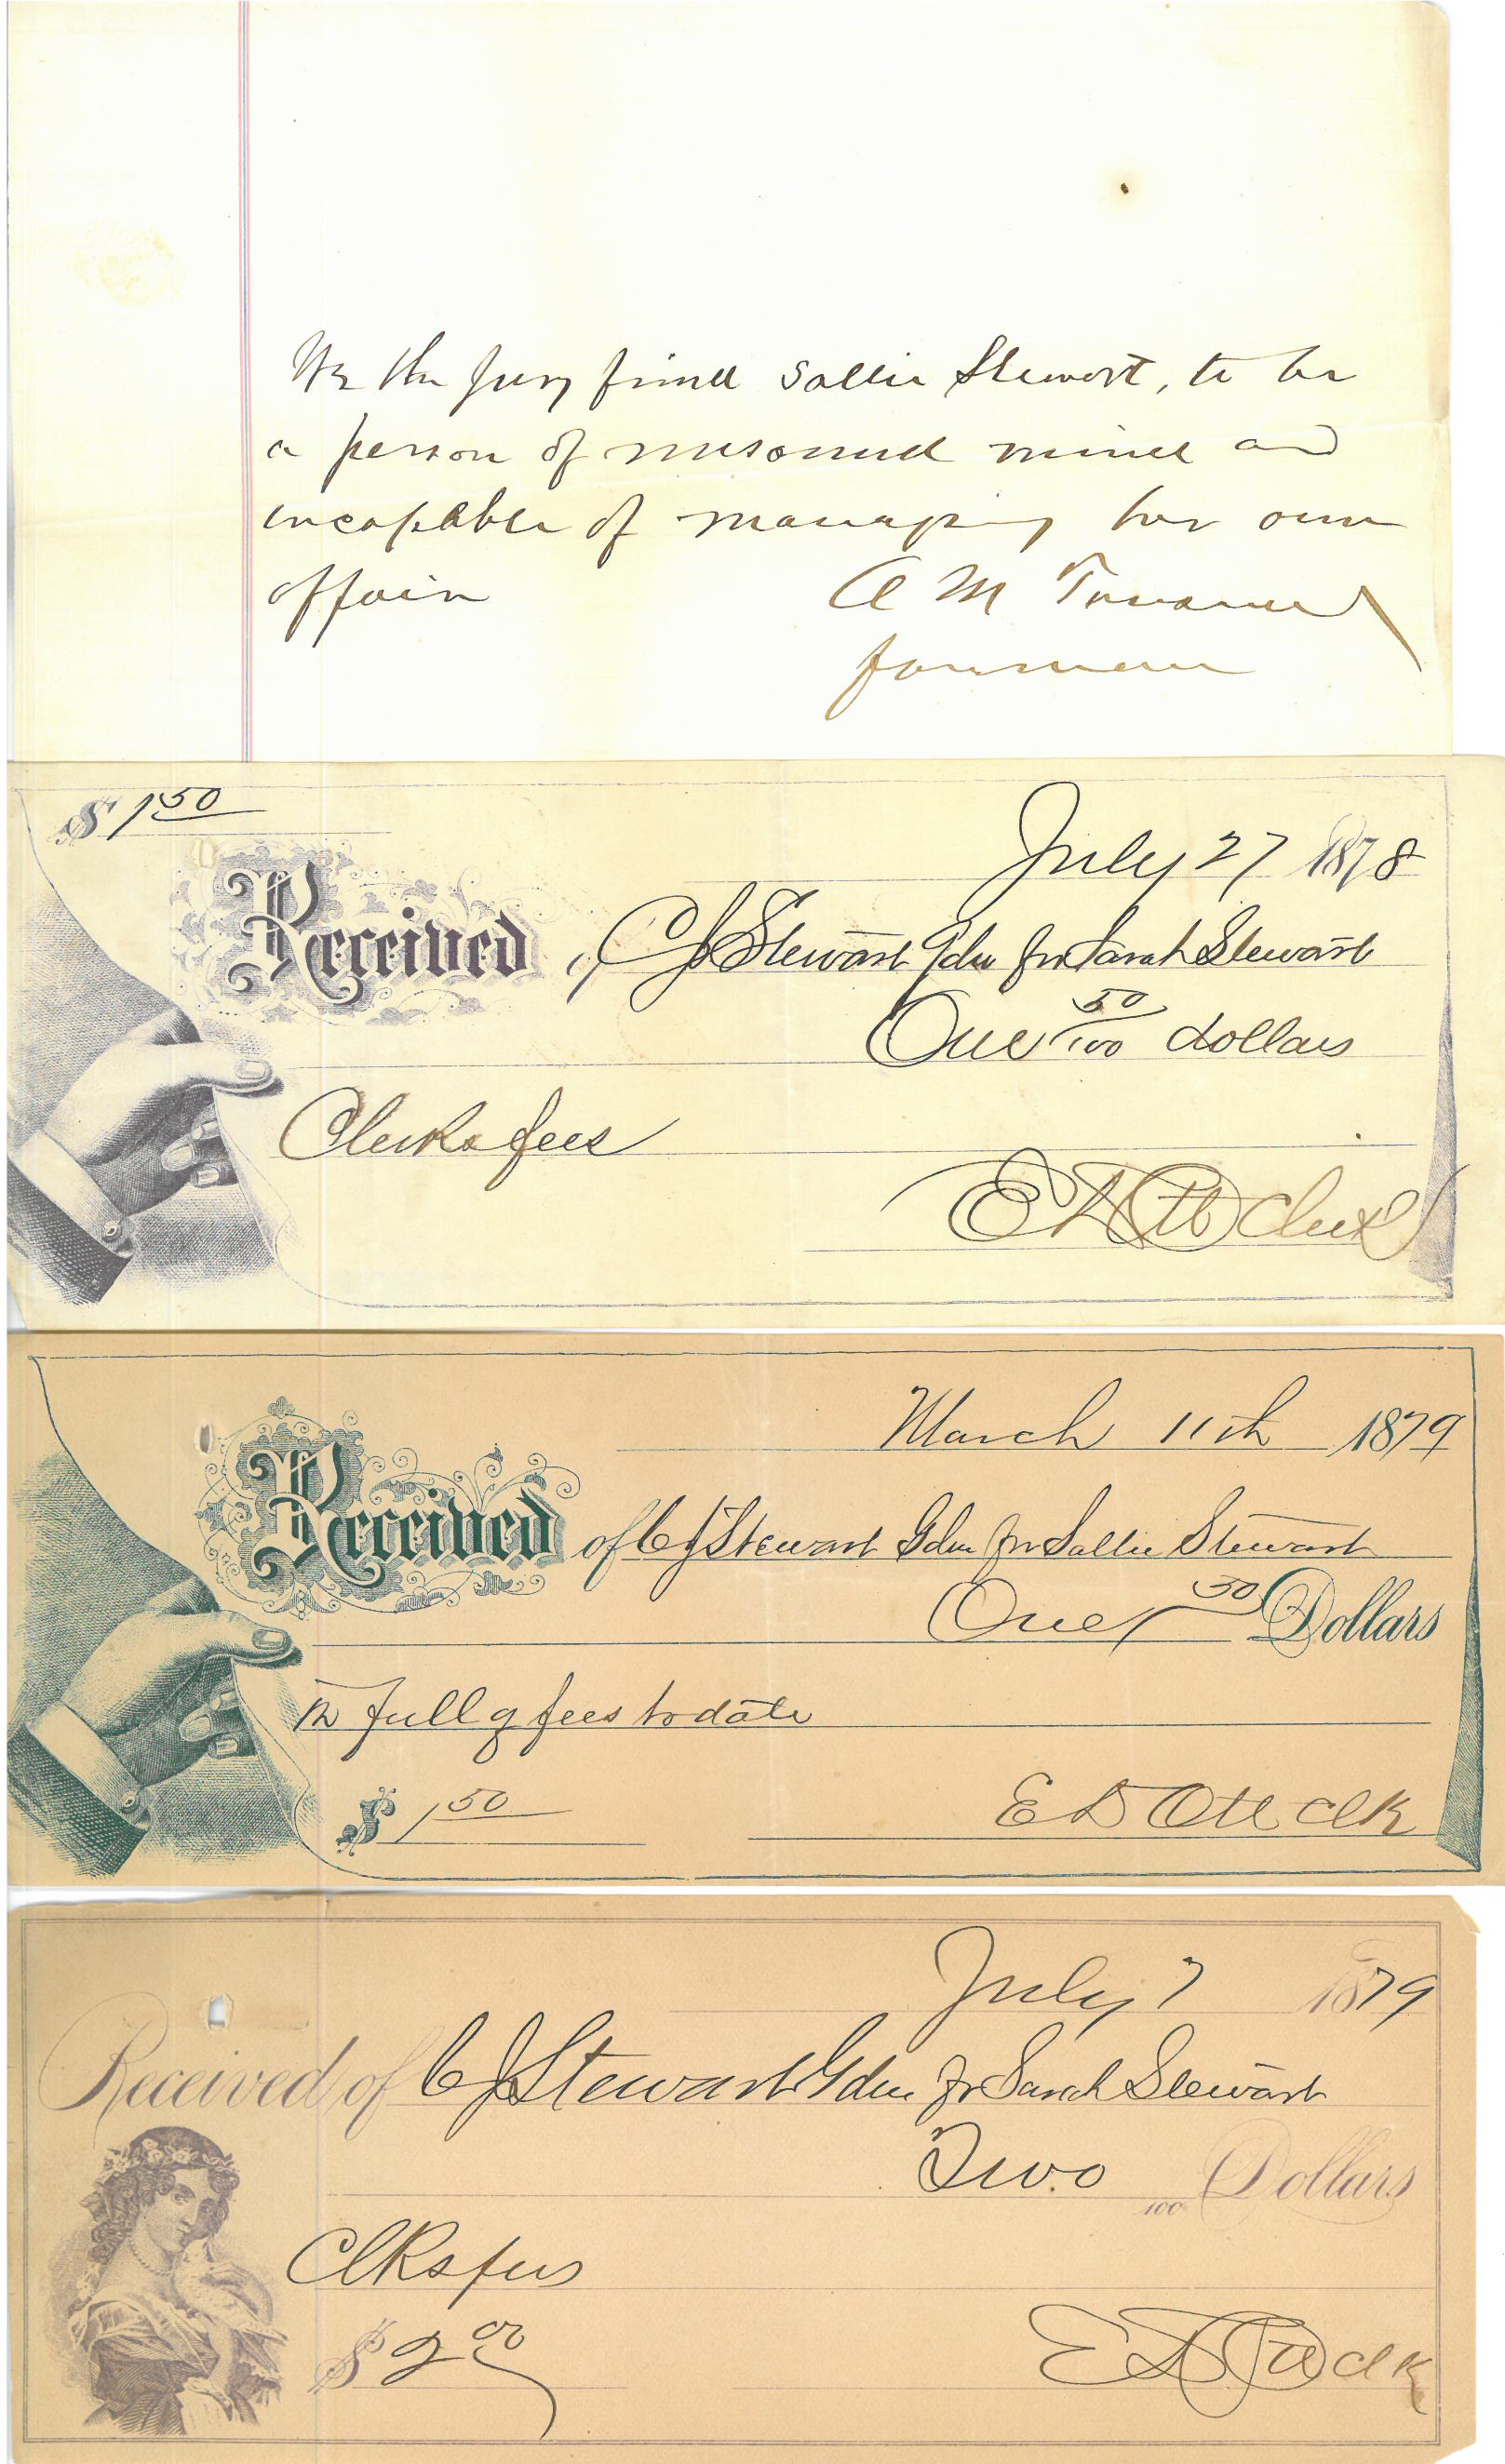 We the Jury find Sallie Stewart, to be
a person of unsound mind and
incapable of managing her own
affairs
A M
foreman
$ 1 50
July 27 1878
Received of C J Stewart Gdn for Sarah Stewart
One 50/100 dollars
Clerks fees
E D Ott Clerk
March 11th 1879
Received of C J Stewart Gdn for Sallie Stewart
One 50 Dollars
In full of fees to date
$ 1 50
E D Ott Clk
July 7 1879
Received of C J Stewart Gdn for Sarah Stewart
Two 100 Dollars
Clks fees
$ 2 00
E D Ott Clk